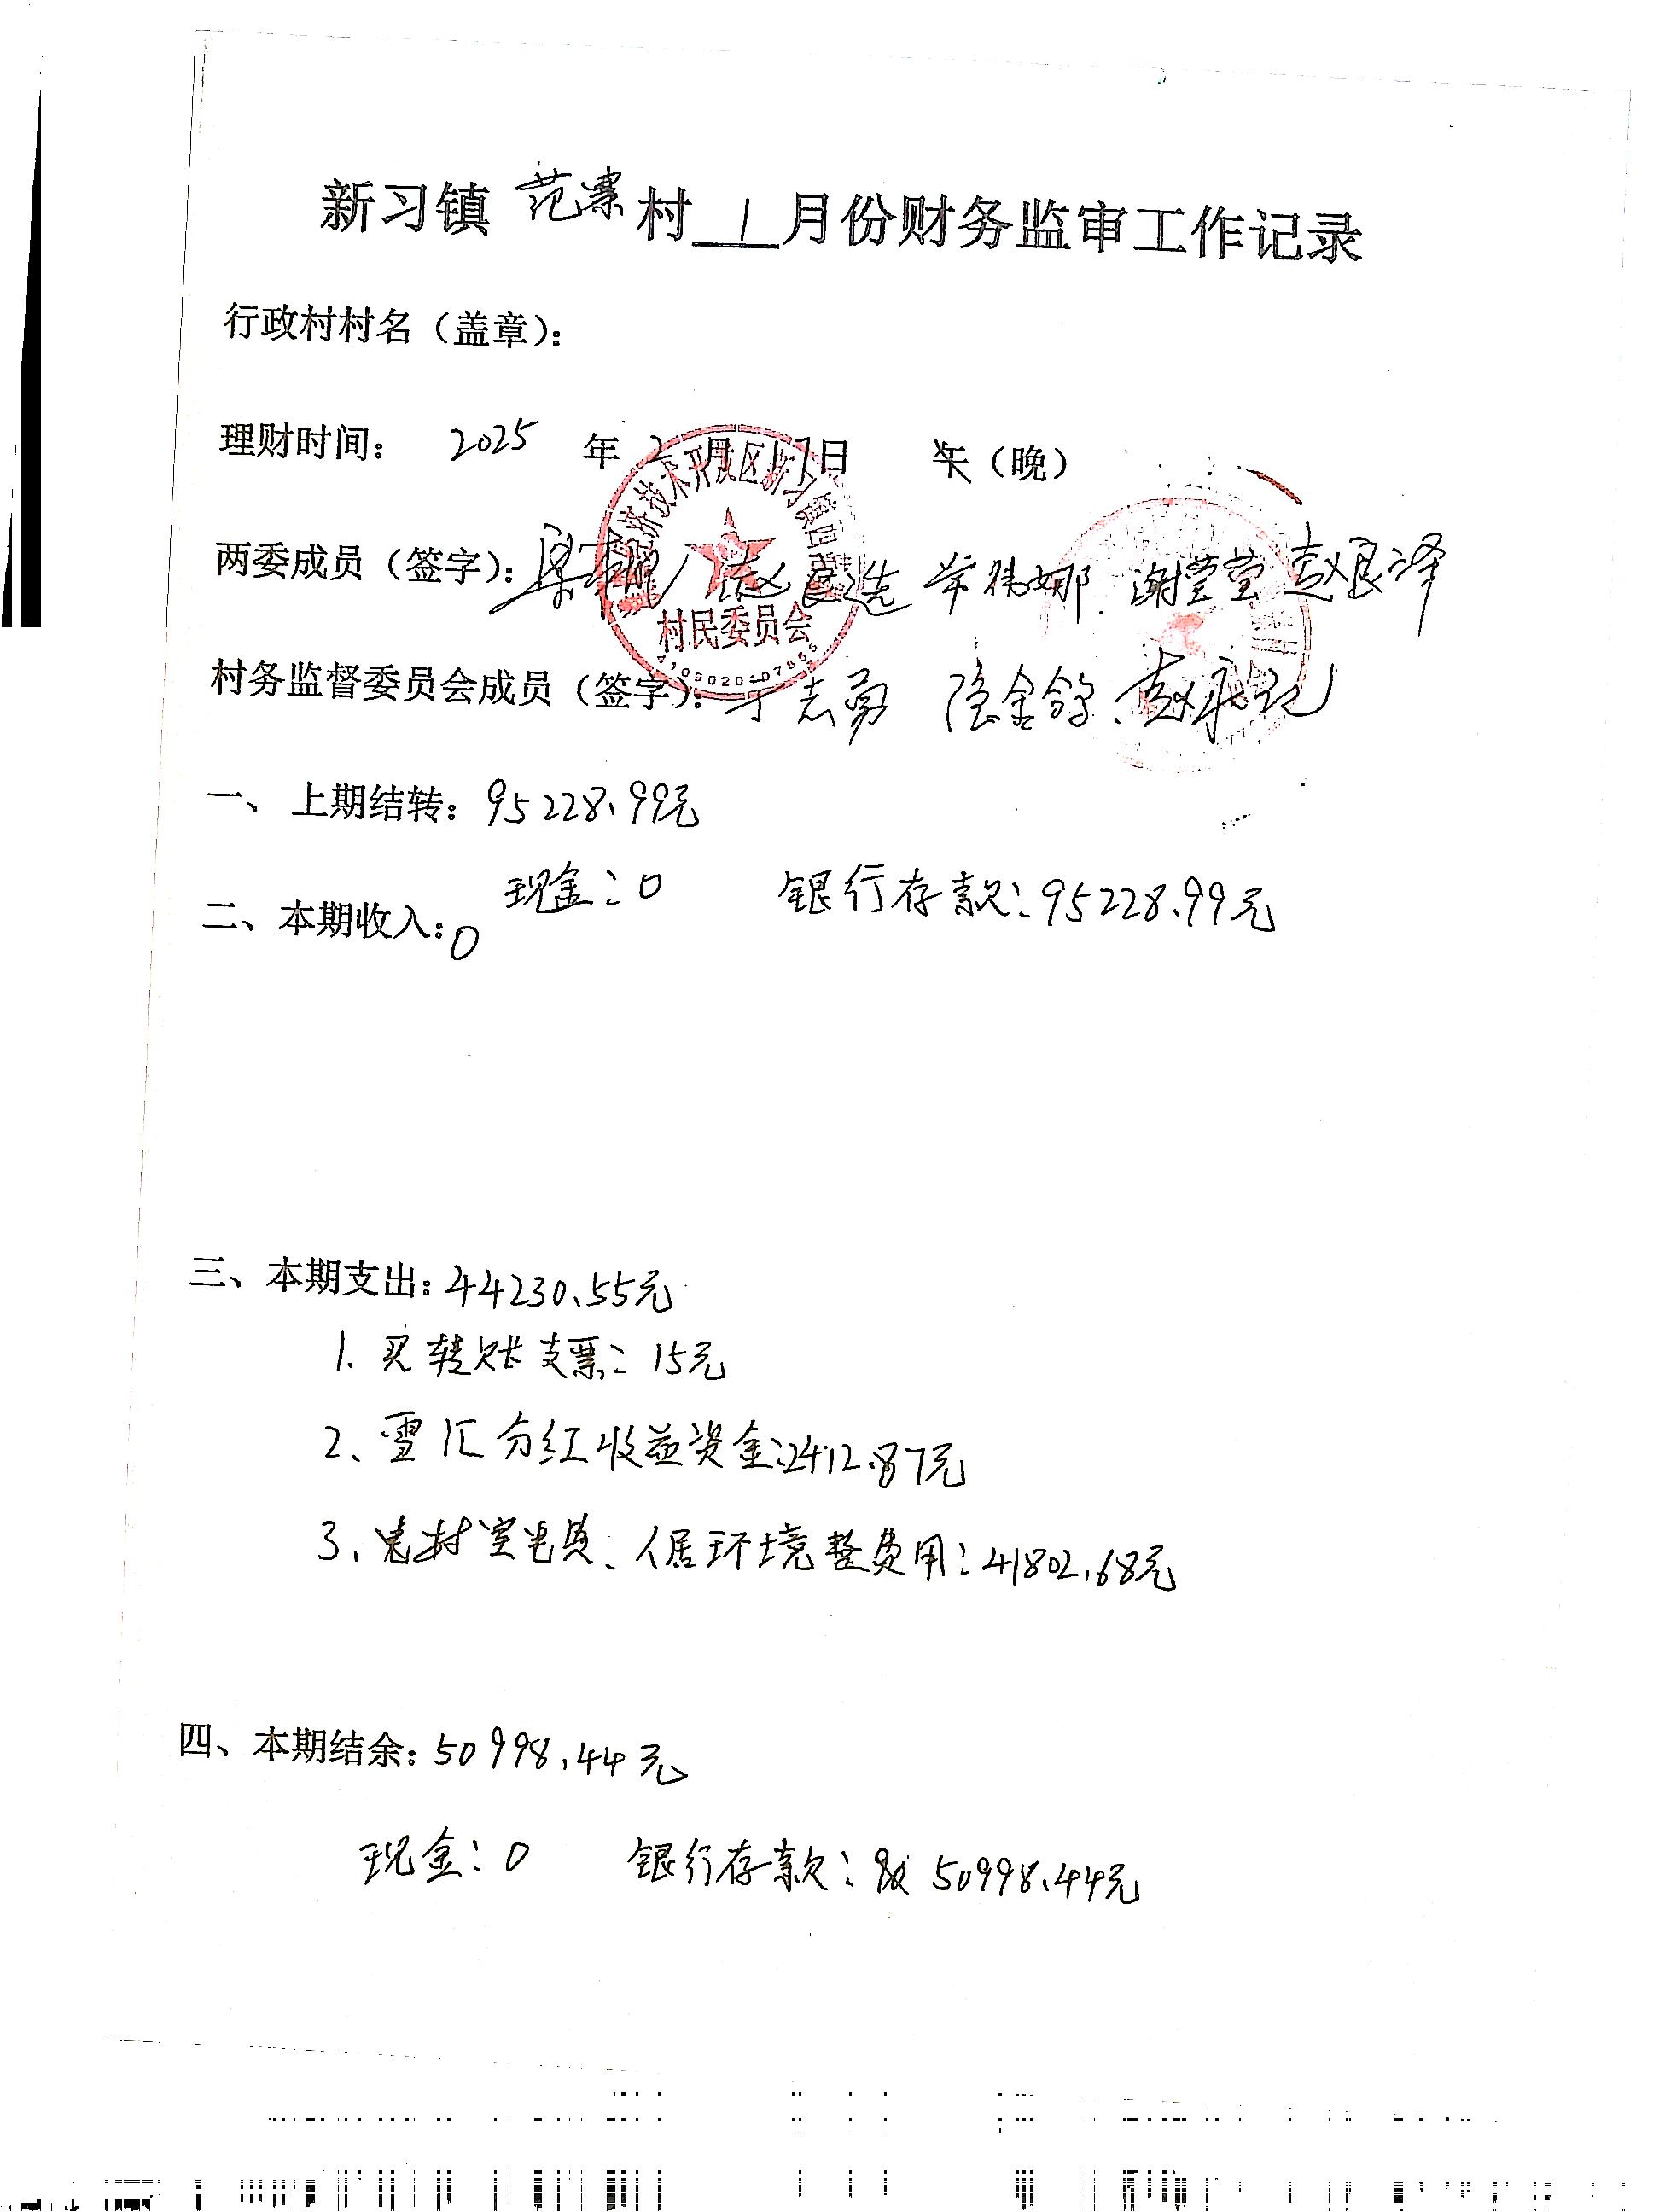 新习镇 范寨村 1 月份财务监审工作记录
行政村村名（盖章）：
理财时间： 2025 年 2 月 17 日 （晚）
两委成员（签字）： 常伟娜 谢莹莹 赵良泽
村民委员会
村务监督委员会成员（签字）： 志勇
一、 上期结转：95228.99元
现金：0 银行存款：95228.99元
二、本期收入：0
三、本期支出：44230.55元
1. 买转账支票：15元
2、雪汇分红收益资金：2412.87元
3、村室电费、人居环境整费用：41802.68元
四、本期结余：50998.44元
现金：0 银行存款：50998.44元